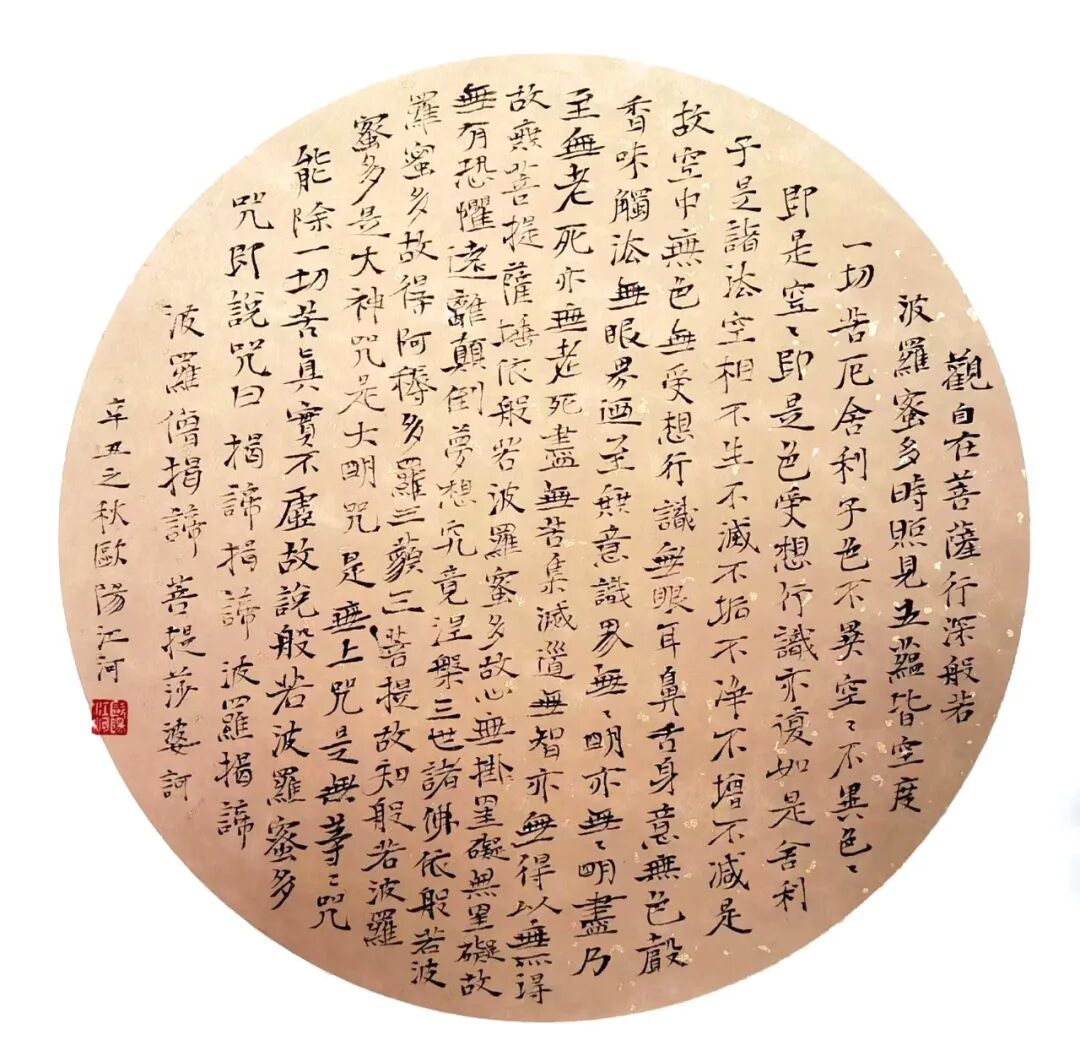 觀自在菩薩行深般若
波羅蜜多時照見五蘊皆空度
一切苦厄舍利子色不異空〻不異色〻
即是空〻即是色受想行識亦復如是舍利
子是諸法空相不生不滅不垢不淨不增不減是
故空中無色無受想行識無眼耳鼻舌身意無色聲
香味觸法無眼界迺至無意識界無〻明亦無〻明盡乃
至無老死亦無老死盡無苦集滅道無智亦無得以無得
故無菩提薩埵依般若波羅蜜多故心無掛罣礙無罣礙故
無有恐懼遠離顛倒夢想究竟涅槃三世諸佛依般若波
羅蜜多故得阿耨多羅三藐三菩提故知般若波羅
蜜多是大神咒是大明咒是無上咒是無等〻咒
能除一切苦眞實不虛故說般若波羅蜜多
咒即說咒曰揭諦揭諦波羅揭諦
波羅僧揭諦菩提莎婆訶
辛丑之秋歐陽江河
歐陽江河